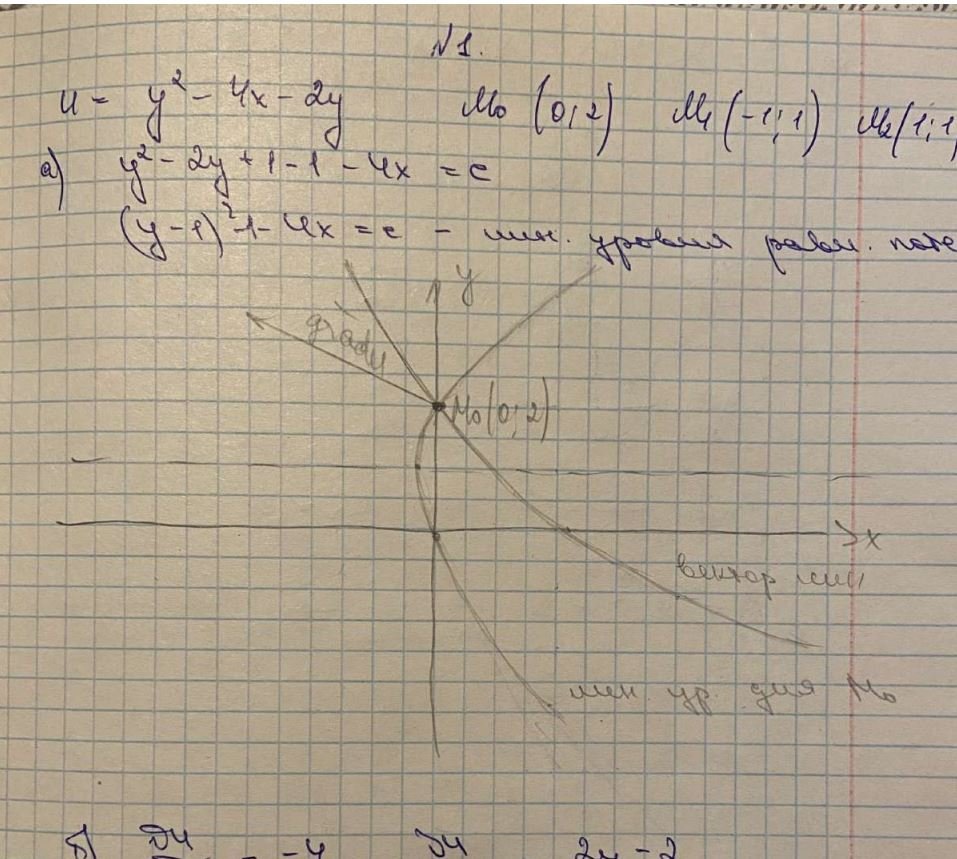 N1.
u = y² - 4x - 2y M₀ (0; 2) M₁ (-1; 1) M₂ (1; 1
а) y² - 2y + 1 - 1 - 4x = c
(y - 1)² - 1 - 4x = c - лин. уровня равн. поте
y
gradu
M₀(0; 2)
x
вектор лин
лин. ур. для M₀
б) = -4 2y - 2